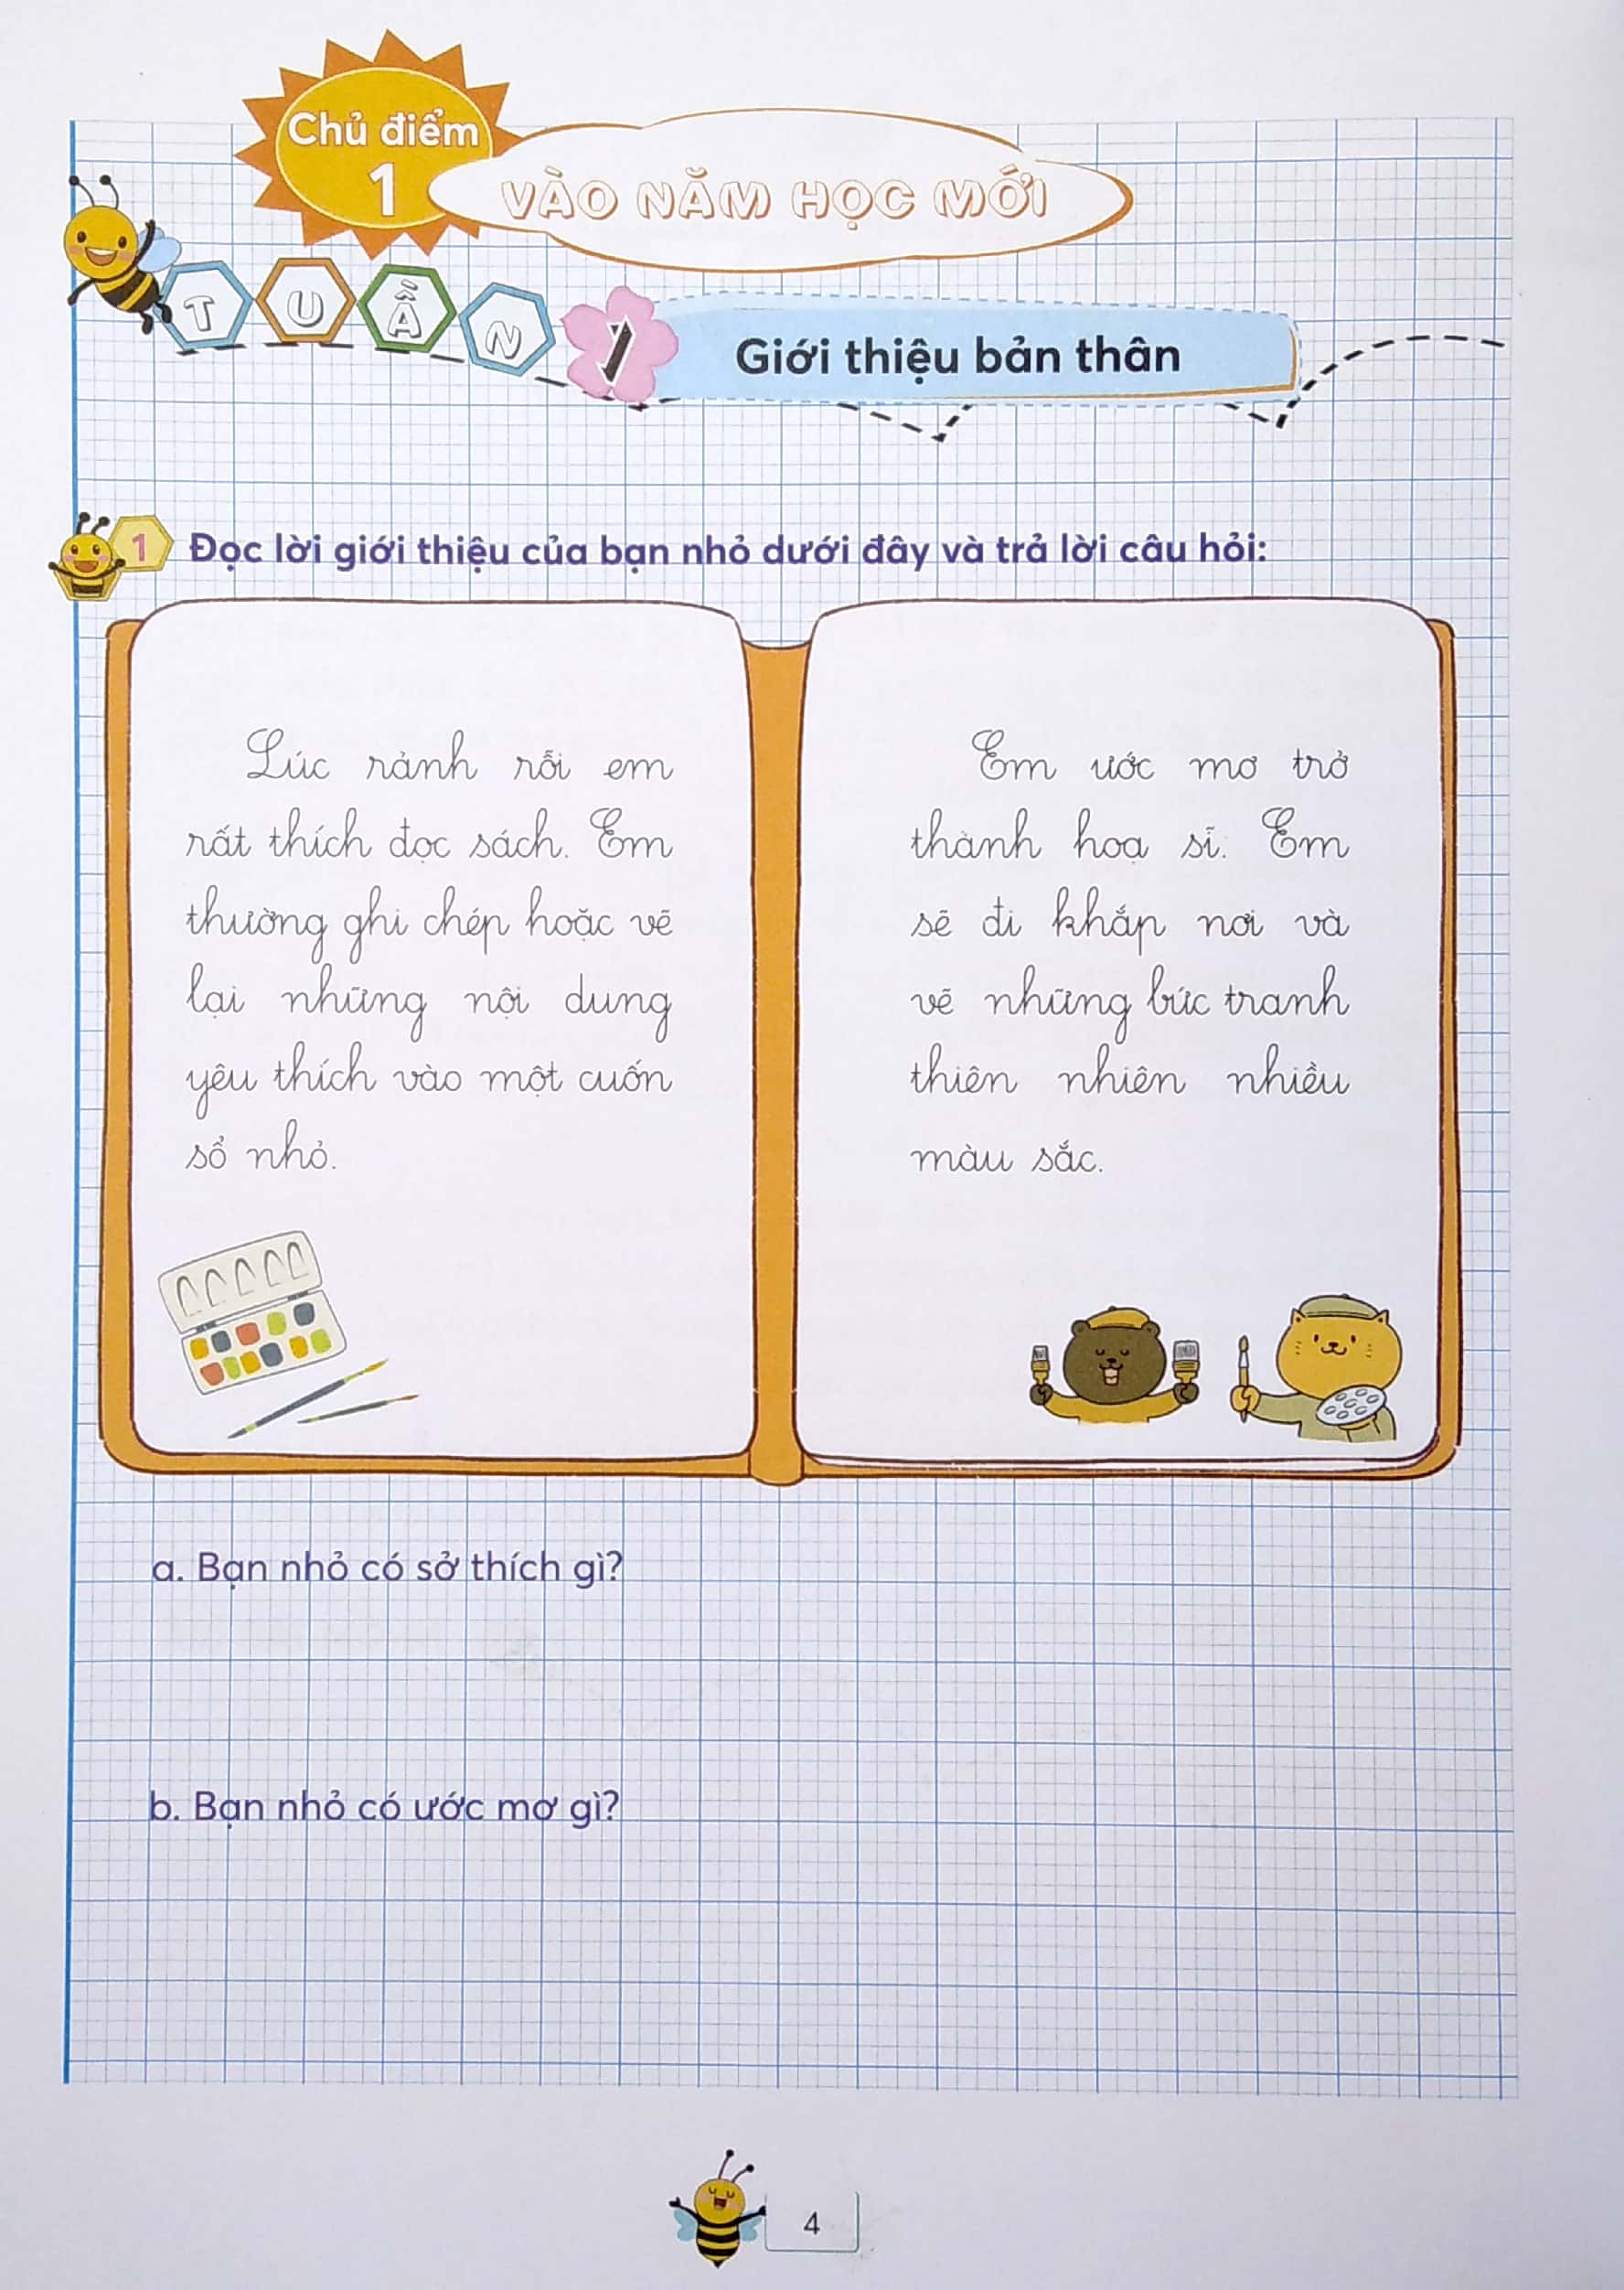 Chủ điểm
1
VÀO NĂM HỌC MỚI
TUẦN 1
Giới thiệu bản thân
1 Đọc lời giới thiệu của bạn nhỏ dưới đây và trả lời câu hỏi:
Lúc rảnh rỗi em
rất thích đọc sách. Em
thường ghi chép hoặc vẽ
lại những nội dung
yêu thích vào một cuốn
sổ nhỏ.
Em ước mơ trở
thành hoạ sĩ. Em
sẽ đi khắp nơi và
vẽ những bức tranh
thiên nhiên nhiều
màu sắc.
a. Bạn nhỏ có sở thích gì?
b. Bạn nhỏ có ước mơ gì?
4